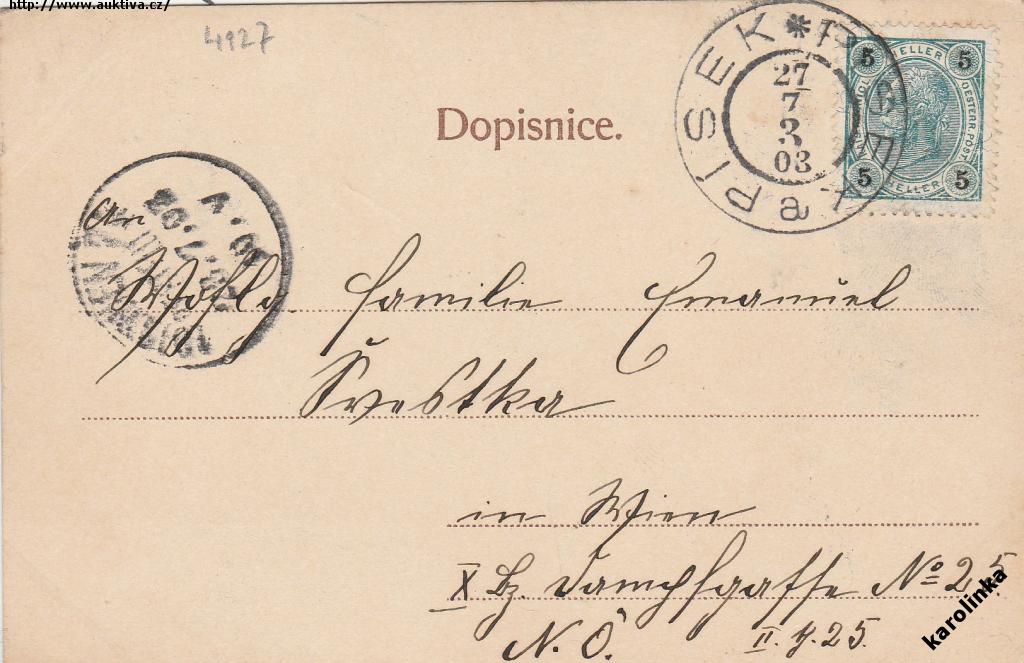 http://www.auktiva.cz/
4927
Dopisnice.
PÍSEK * PÍSEK
27
7
3
03
5 HELLER 5
OESTERR. POST
5 HELLER 5
WIEN
An
Wohlg. Familie Emanuel
Švestka
in Wien
X Bz. Dampfgasse No 25
N. Ö. II. 25
karolinka